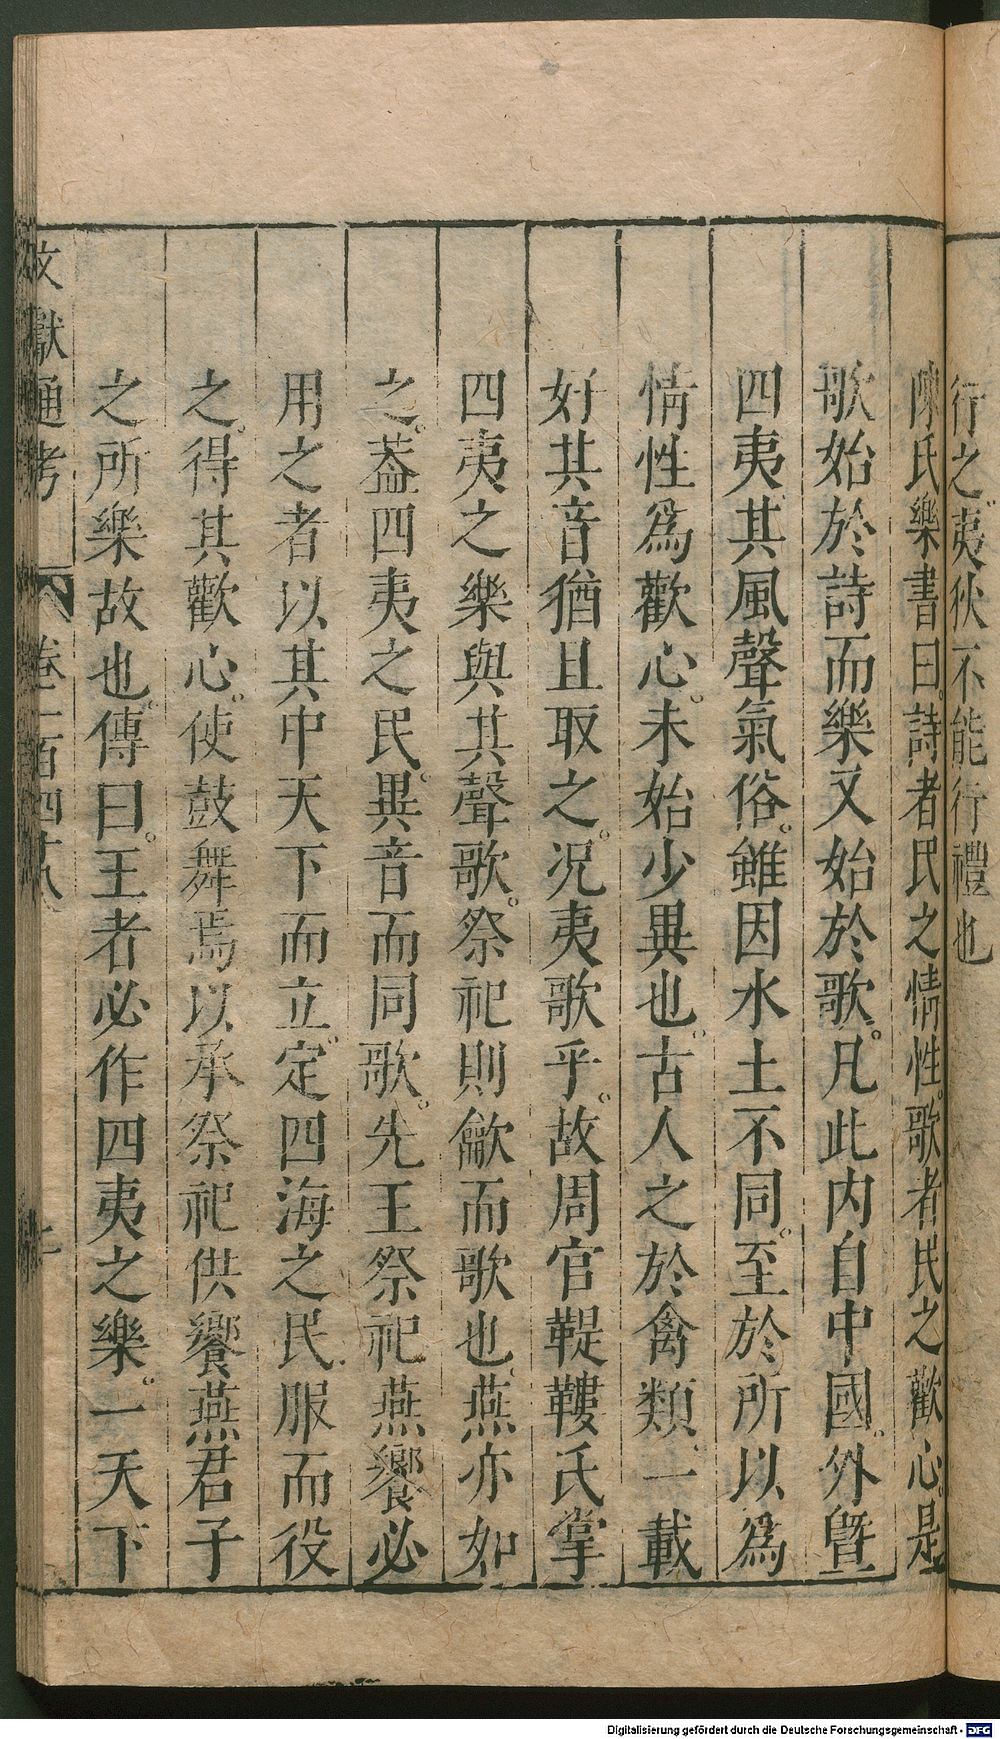 行之夷狄不能行禮也
陳氏樂書曰詩者民之情性歌者民之歡心是
歌始於詩而樂又始於歌凡此內自中國外曁
四夷其風聲氣俗雖因水土不同至於所以爲
情性爲歡心未始少異也古人之於禽類一載
好其音猶且取之况夷歌乎故周官鞮鞻氏掌
四夷之樂與其聲歌祭祀則龡而歌也燕亦如
之葢四夷之民異音而同歌先王祭祀燕饗必
用之者以其中天下而立定四海之民服而役
之得其歡心使鼓舞焉以承祭祀供饗燕君子
之所樂故也傳曰王者必作四夷之樂一天下
文獻通考 卷一百四十八
Digitalisierung gefördert durch die Deutsche Forschungsgemeinschaft - DFG